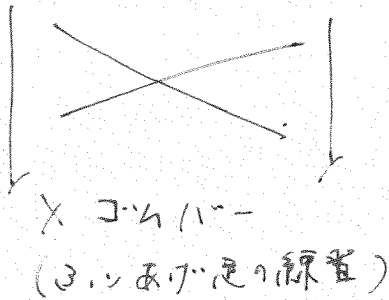 X ゴムバー
(ふりあげ足の練習)